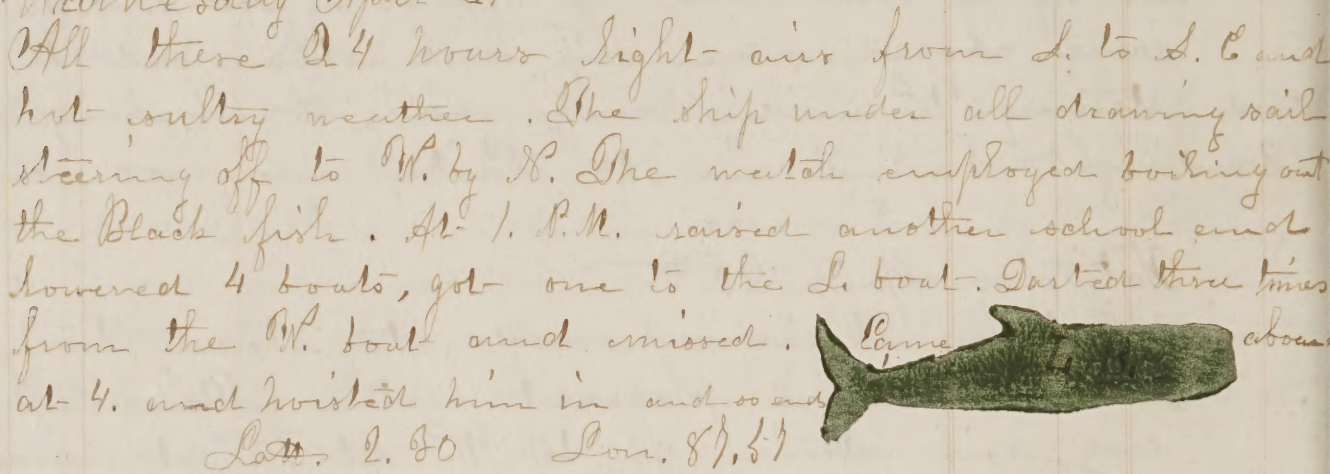 Wednesday April
All these 24 hours light airs from S. to S. E and
hot sultry weather. The ship under all drawing sail
steering off to W. by N. The watch employed boiling out
the Black fish. At 1. P.M. raised another school and
lowered 4 boats, got one to the L. boat. Darted three times
from the W. boat and missed. Came L. B. aboard
at 4. and hoisted him in and so ends
Latt. 2.30 Lon. 87,57